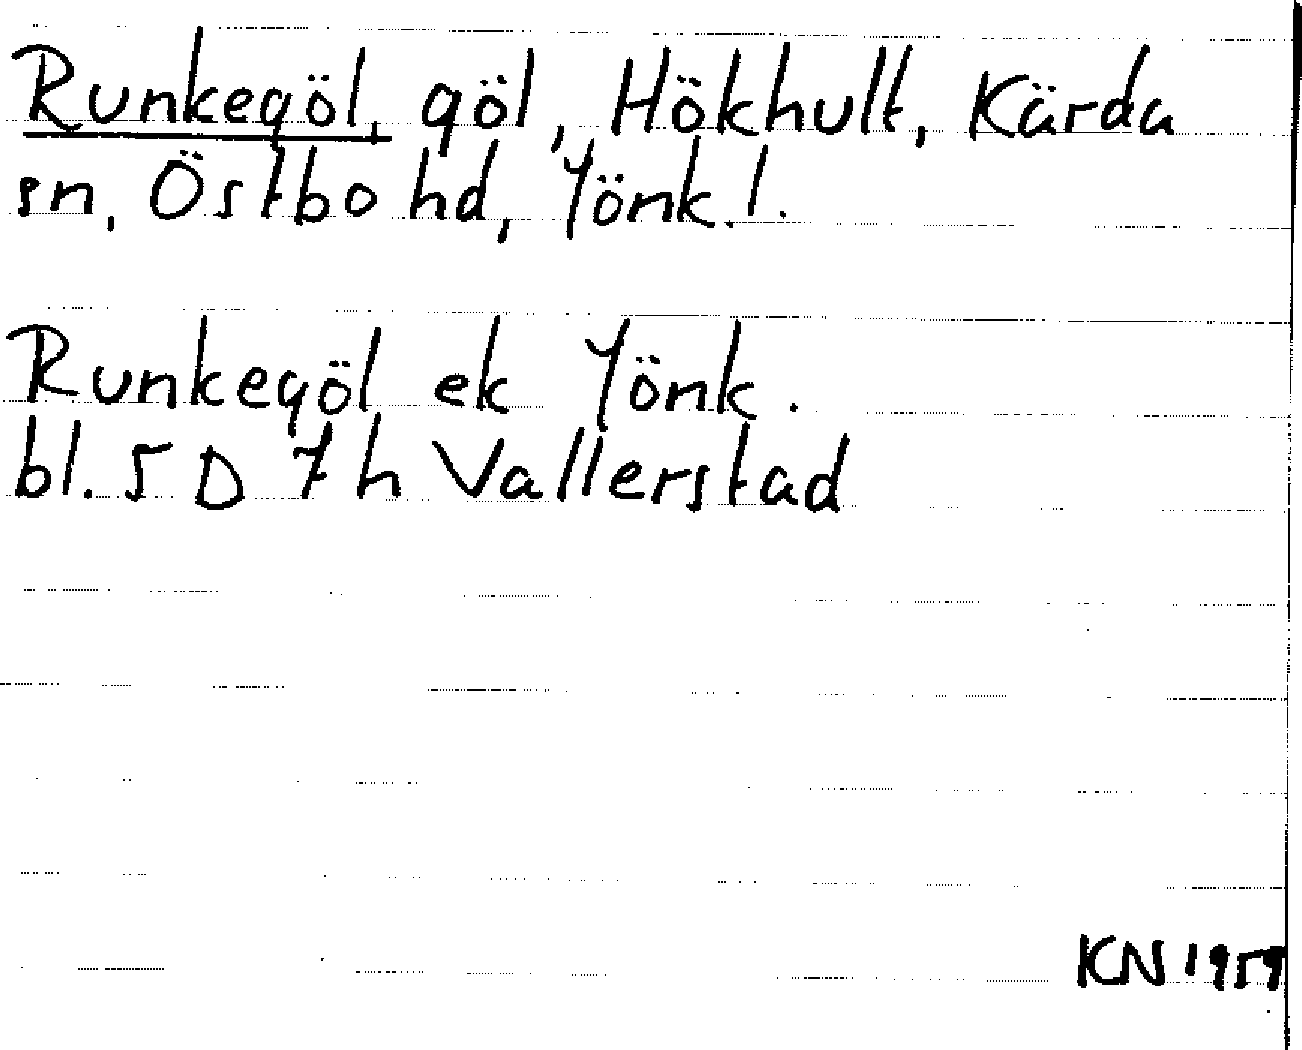 Runkegöl, göl, Hökhult, Kärda
sn, Östbo hd, Jönk. l.
Runkegöl ek Jönk.
bl. 5 D 7 h Vallerstad
KN 1959